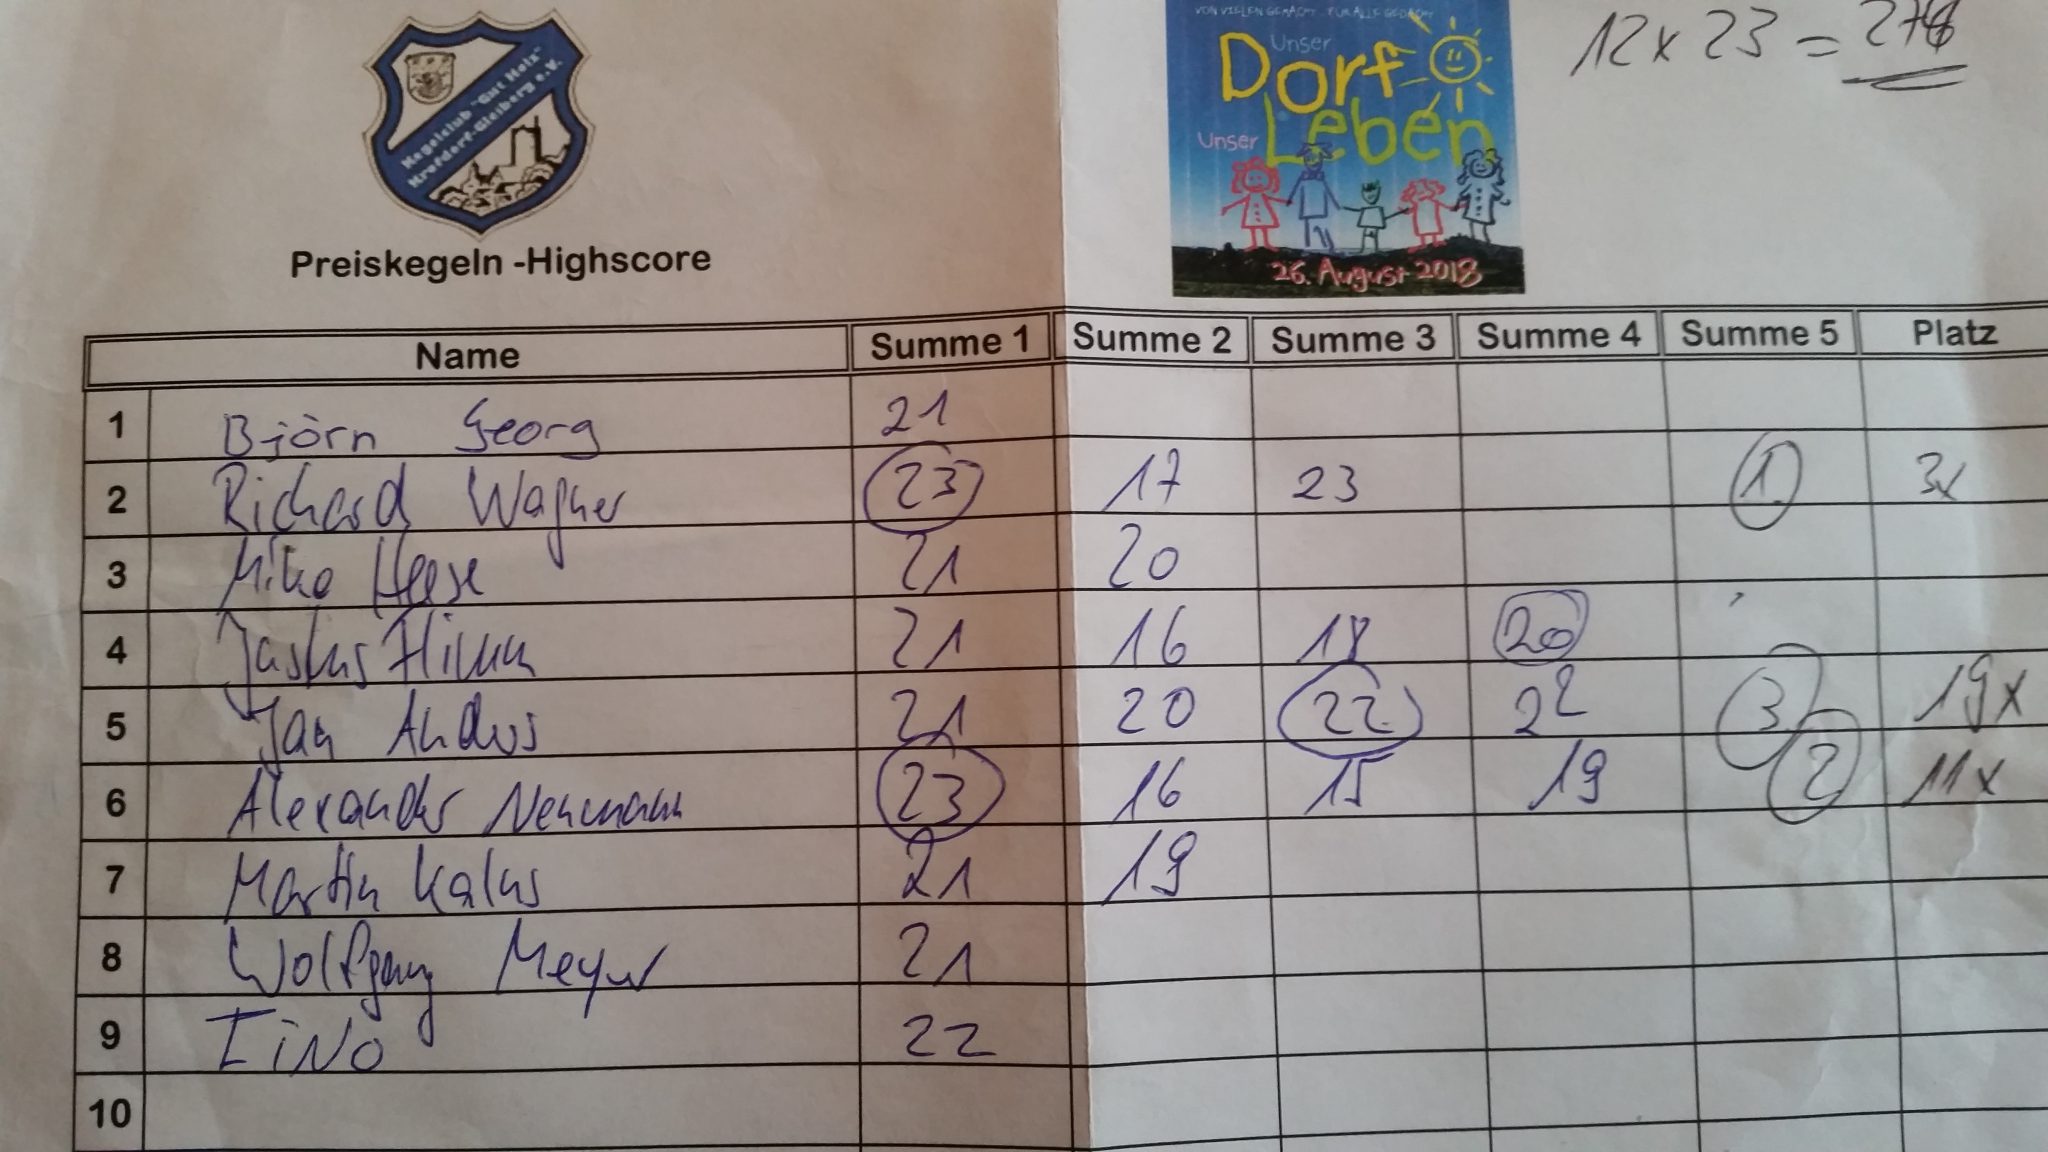 VON VIELEN GEMACHT FÜR ALLE GEDACHT
Unser
Dorf
Unser Leben
26. August 2018
12 x 23 = 276
Kegelclub "Gut Holz"
Krofdorf-Gleiberg e.V.
Preiskegeln -Highscore
Name Summe 1 Summe 2 Summe 3 Summe 4 Summe 5 Platz
1 Björn Georg 21
2 Richard Wagner 23 17 23 1. 3x
3 Mike Heese 21 20
4 21 16 18 20
5 Jan Anders 21 20 22 22 3 19x
6 Alexander Neumann 23 16 15 19 2 11x
7 Martin Kalus 21 19
8 Wolfgang Meyer 21
9 TiNo 22
10